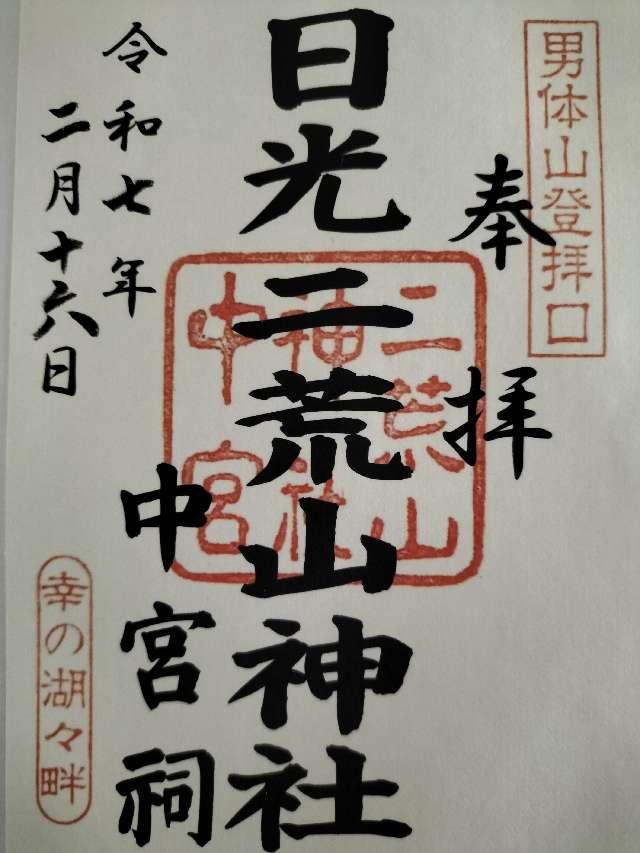 男体山登拝口
奉拝
日光二荒山神社
中宮祠
二荒山
神社
中宮
令和七年
二月十六日
幸の湖々畔